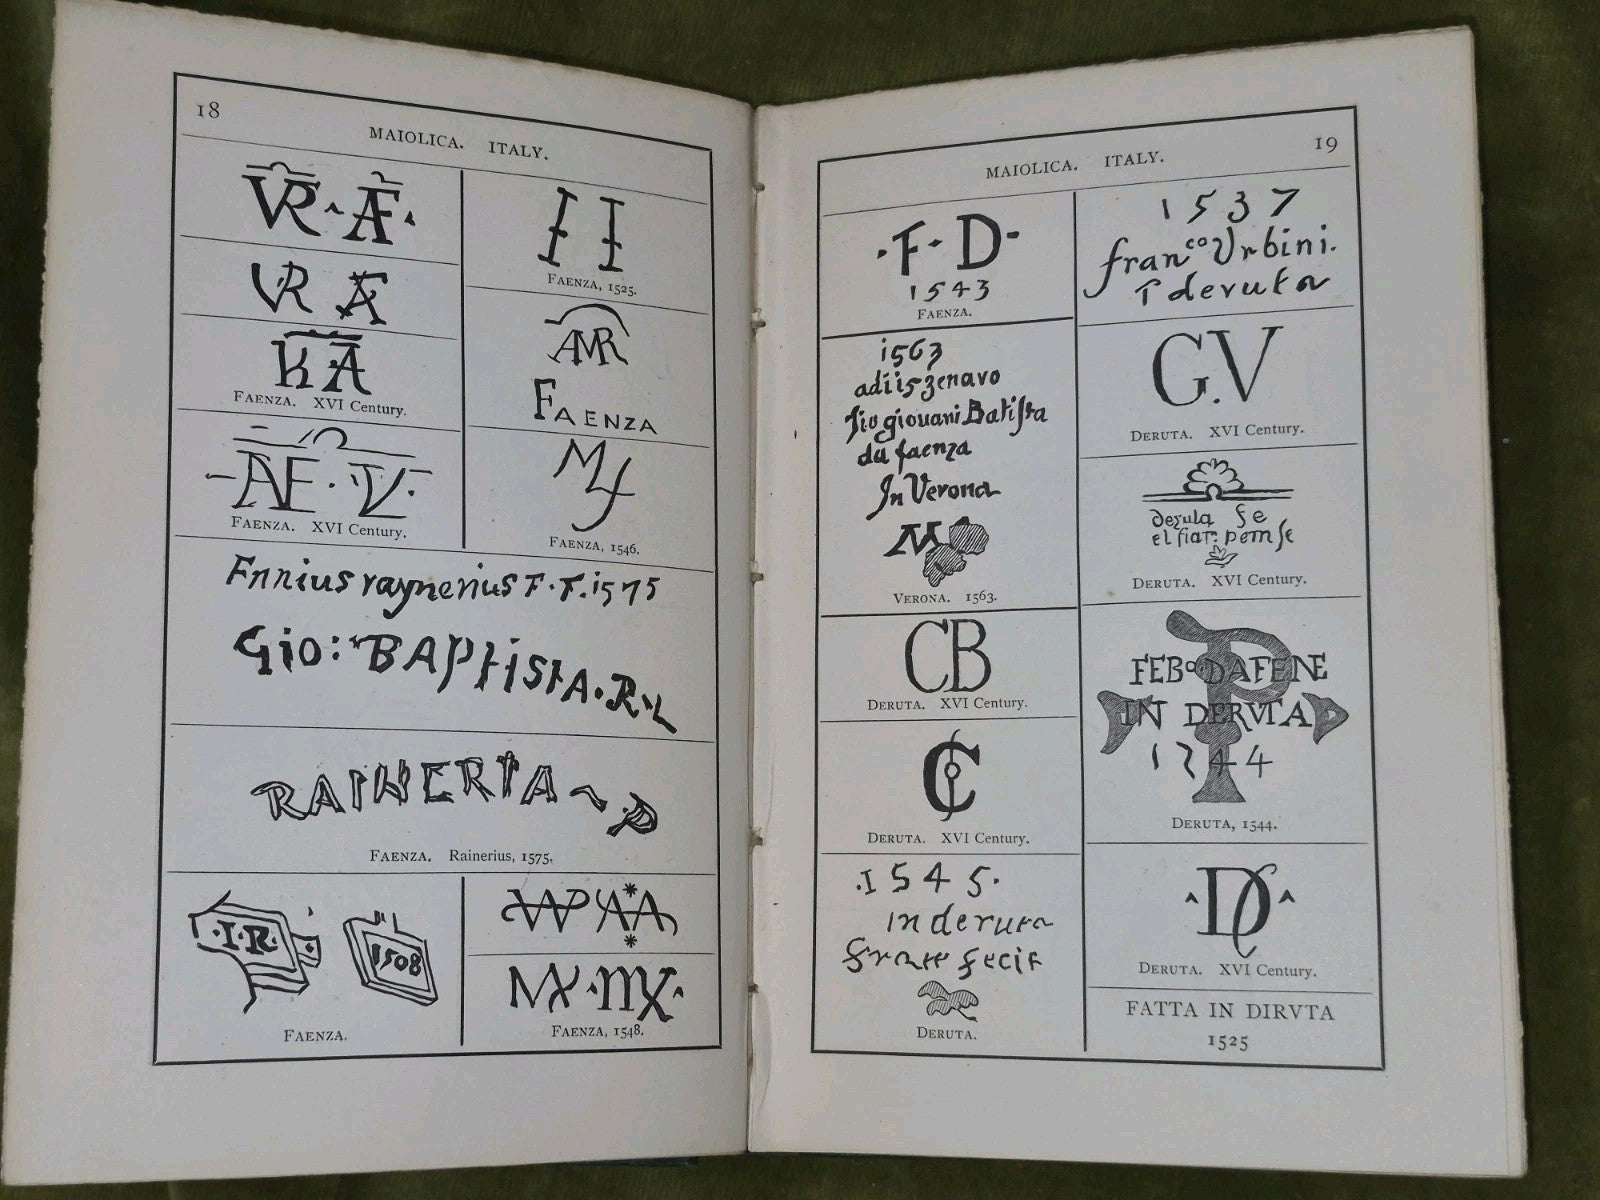 18
MAIOLICA. ITALY.
VR · AF ·
VR AF
KA
FAENZA. XVI Century.
AF · V ·
FAENZA. XVI Century.
FAENZA, 1525.
FAENZA
FAENZA, 1546.
Ennius raynerius F. F. 1575
Gio: BAPtista. R
RAINERIA
FAENZA. Rainerius, 1575.
· I · R ·
1508
FAENZA.
FAENZA, 1548.
MAIOLICA. ITALY.
19
· F · D ·
1543
FAENZA.
1563
adi 15 zenavo
Gio giovani Batista
da faenza
In Verona
M
VERONA. 1563.
CB
DERUTA. XVI Century.
C
DERUTA. XVI Century.
· 1545 ·
in deruta
frate fecit
DERUTA.
1537
franco Urbini.
deruta
G.V
DERUTA. XVI Century.
fe
el
DERUTA. XVI Century.
P
FEBO · DAFENE
IN DERVTA
1544
DERUTA, 1544.
DC
DERUTA. XVI Century.
FATTA IN DIRVTA
1525